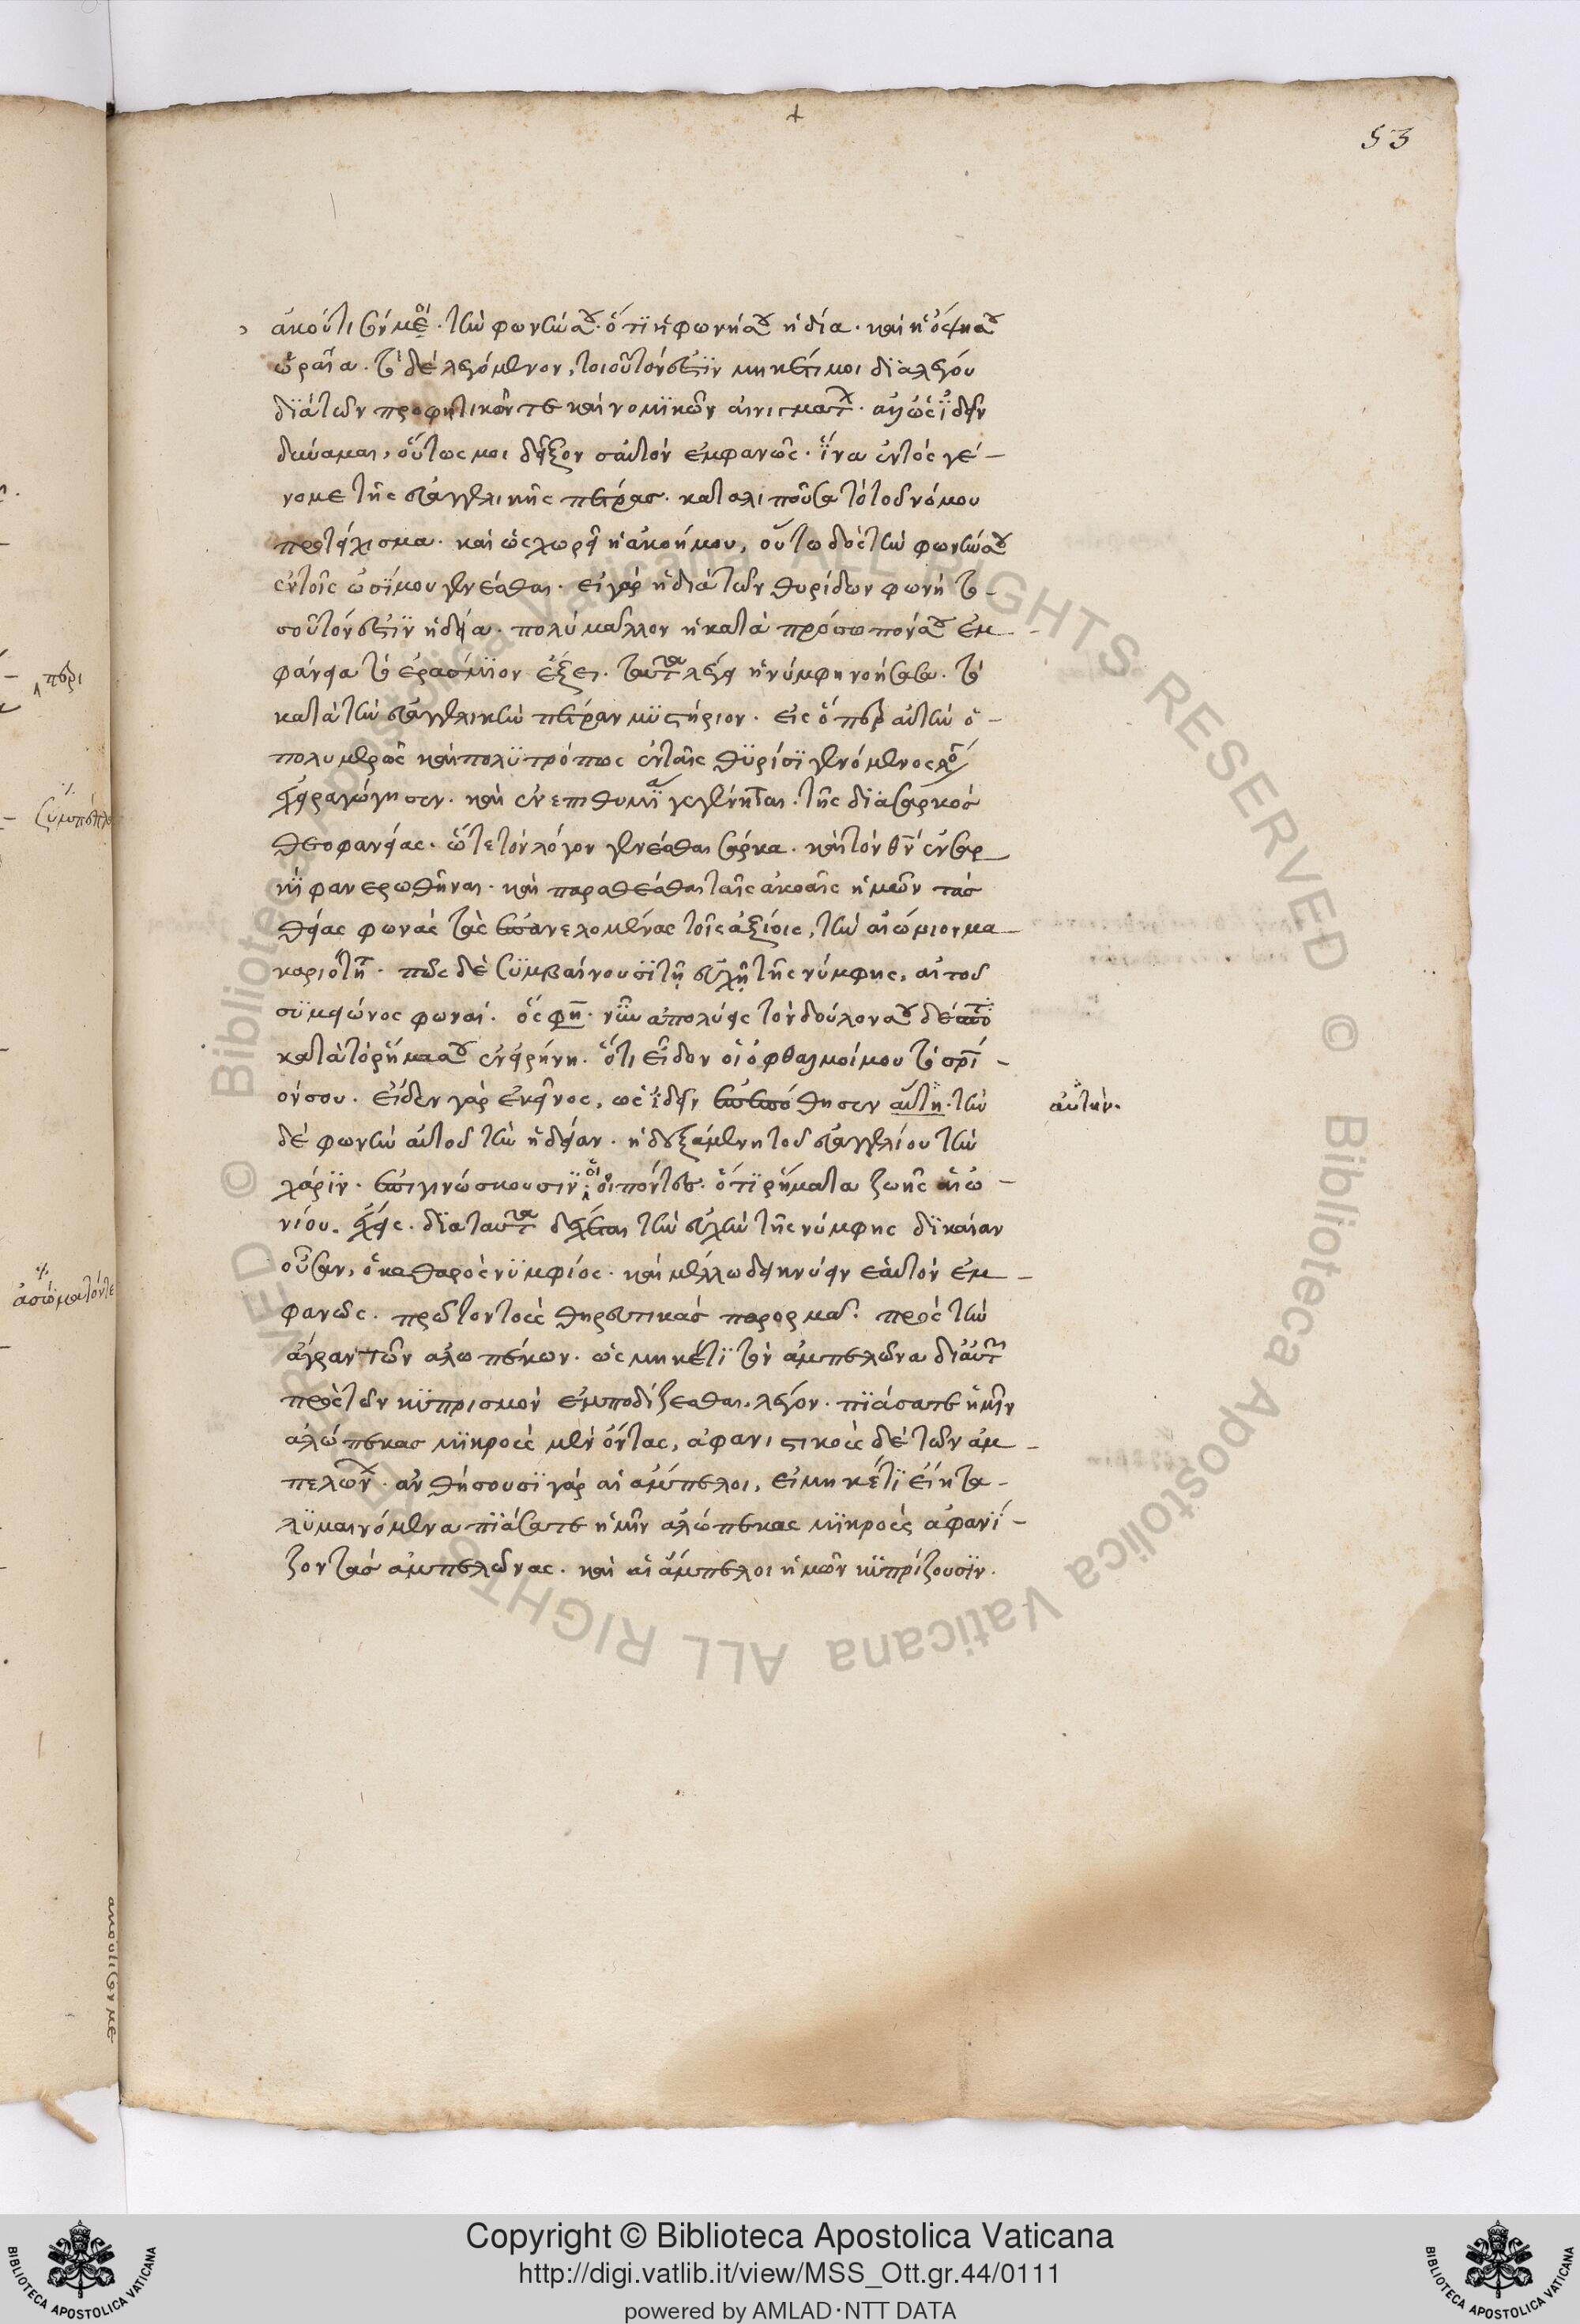 53
ἀκούτισόν με. τὴν φωνήν σου. ὅτι ἡ φωνή σου ἡδεία. καὶ ἡ ὄψις σου
ὡραία. τὸ δὲ λεγόμενον, τοιοῦτόν ἐστιν μηκέτι μοι διαλέγου
διὰ τῶν προφητικῶν τε καὶ νομικῶν αἰνιγμάτων. ἀλλ' ὡς ἰδεῖν
δύναμαι, οὕτως μοι δεῖξον σαυτὸν ἐμφανῶς. ἵνα ἐντὸς γέ-
νομε τῆς εὐαγγελικῆς πέτρας. καταλιποῦσα τὸ τοῦ νόμου
προτείχισμα. καὶ ὡς χωρεῖ ἡ ἀκοή μου, οὕτω δὸς τὴν φωνήν σου
ἐν τοῖς ὠσί μου γενέσθαι. εἰ γὰρ ἡ διὰ τῶν θυρίδων φωνὴ το-
σοῦτόν ἐστιν ἡδεῖα. πολὺ μᾶλλον ἡ κατὰ πρόσωπόν σου ἐμ-
φάνεια τὸ ἐράσμιον ἕξει. ταῦτα λέγει ἡ νύμφη νοήσασα. τὸ
κατὰ τὴν εὐαγγελικὴν πέτραν μυστήριον. εἰς ὅπερ αὐτὴν ὁ
πολυμερῶς καὶ πολυτρόπως ἐν ταῖς θυρίσι γενόμενος λόγος
ἐχειραγώγησεν. καὶ ἐν ἐπιθυμίᾳ γεγένηται. τῆς διὰ σαρκὸς
θεοφανείας. ὥστε τὸν λόγον γενέσθαι σάρκα. καὶ τὸν θν ἐν σαρ
κὶ φανερωθῆναι. καὶ παραθέσθαι ταῖς ἀκοαῖς ἡμῶν τὰς
θείας φωνὰς τὰς ἐπανελομένας τοῖς ἀξίοις, τὴν αἰώνιον μα-
καριότητα. πῶς δὲ συμβαίνουσι τῇ εὐχῇ τῆς νύμφης, αἱ τοῦ
συμεῶνος φωναί. ὅς φη. νῦν ἀπολύεις τὸν δοῦλόν σου δέσποτα
κατὰ τὸ ῥῆμά σου ἐν εἰρήνῃ. ὅτι εἶδον οἱ ὀφθαλμοί μου τὸ σρι-
όν σου. εἶδεν γὰρ ἐκεῖνος, ὡς ἰδεῖν ἐπεπόθησεν αὕτη. τὴν
αὐτήν.
δὲ φωνὴν αὐτοῦ τὴν ἡδεῖαν. ἡ δεξαμένη τοῦ εὐαγγελίου τὴν
χάριν. ἐπιγινώσκουσιν οἱ εἰπόντες. ὅτι ῥήματα ζωῆς αἰω-
νίου. ἔχεις. διὰ ταῦτα δέχεται τὴν εὐχὴν τῆς νύμφης δικαίαν
οὖσαν, ὁ καθαρὸς νυμφίος. καὶ μέλλω δεικνύειν ἑαυτὸν ἐμ-
φανῶς. πρῶτον τοὺς θηρευτικὰς παρορμᾷ. πρὸς τὴν
ἄγραν τῶν ἀλωπέκων. ὡς μηκέτι τὸν ἀμπελῶνα δι' αὐτῶν
πρὸς τὸν κυπρισμὸν ἐμποδίζεσθαι, λέγον. πιάσατε ἡμῖν
ἀλώπεκας μικροὺς μὲν ὄντας, ἀφανιστικοὺς δὲ τῶν ἀμ-
πελώνων. ἀνθήσουσι γὰρ αἱ ἄμπελοι, εἰ μηκέτι εἴη τα-
λυμαινόμενα πιάσατε ἡμῖν ἀλώπεκας μικροὺς ἀφανί-
ζοντας ἀμπελῶνας. καὶ αἱ ἄμπελοι ἡμῶν κυπρίζουσιν.
περὶ
Copyright © Biblioteca Apostolica Vaticana
http://digi.vatlib.it/view/MSS_Ott.gr.44/0111
powered by AMLAD·NTT DATA
BIBLIOTECA APOSTOLICA VATICANA
BIBLIOTECA APOSTOLICA VATICANA
© Biblioteca Apostolica Vaticana ALL RIGHTS RESERVED © Biblioteca Apostolica Vaticana ALL RIGHTS RESERVED